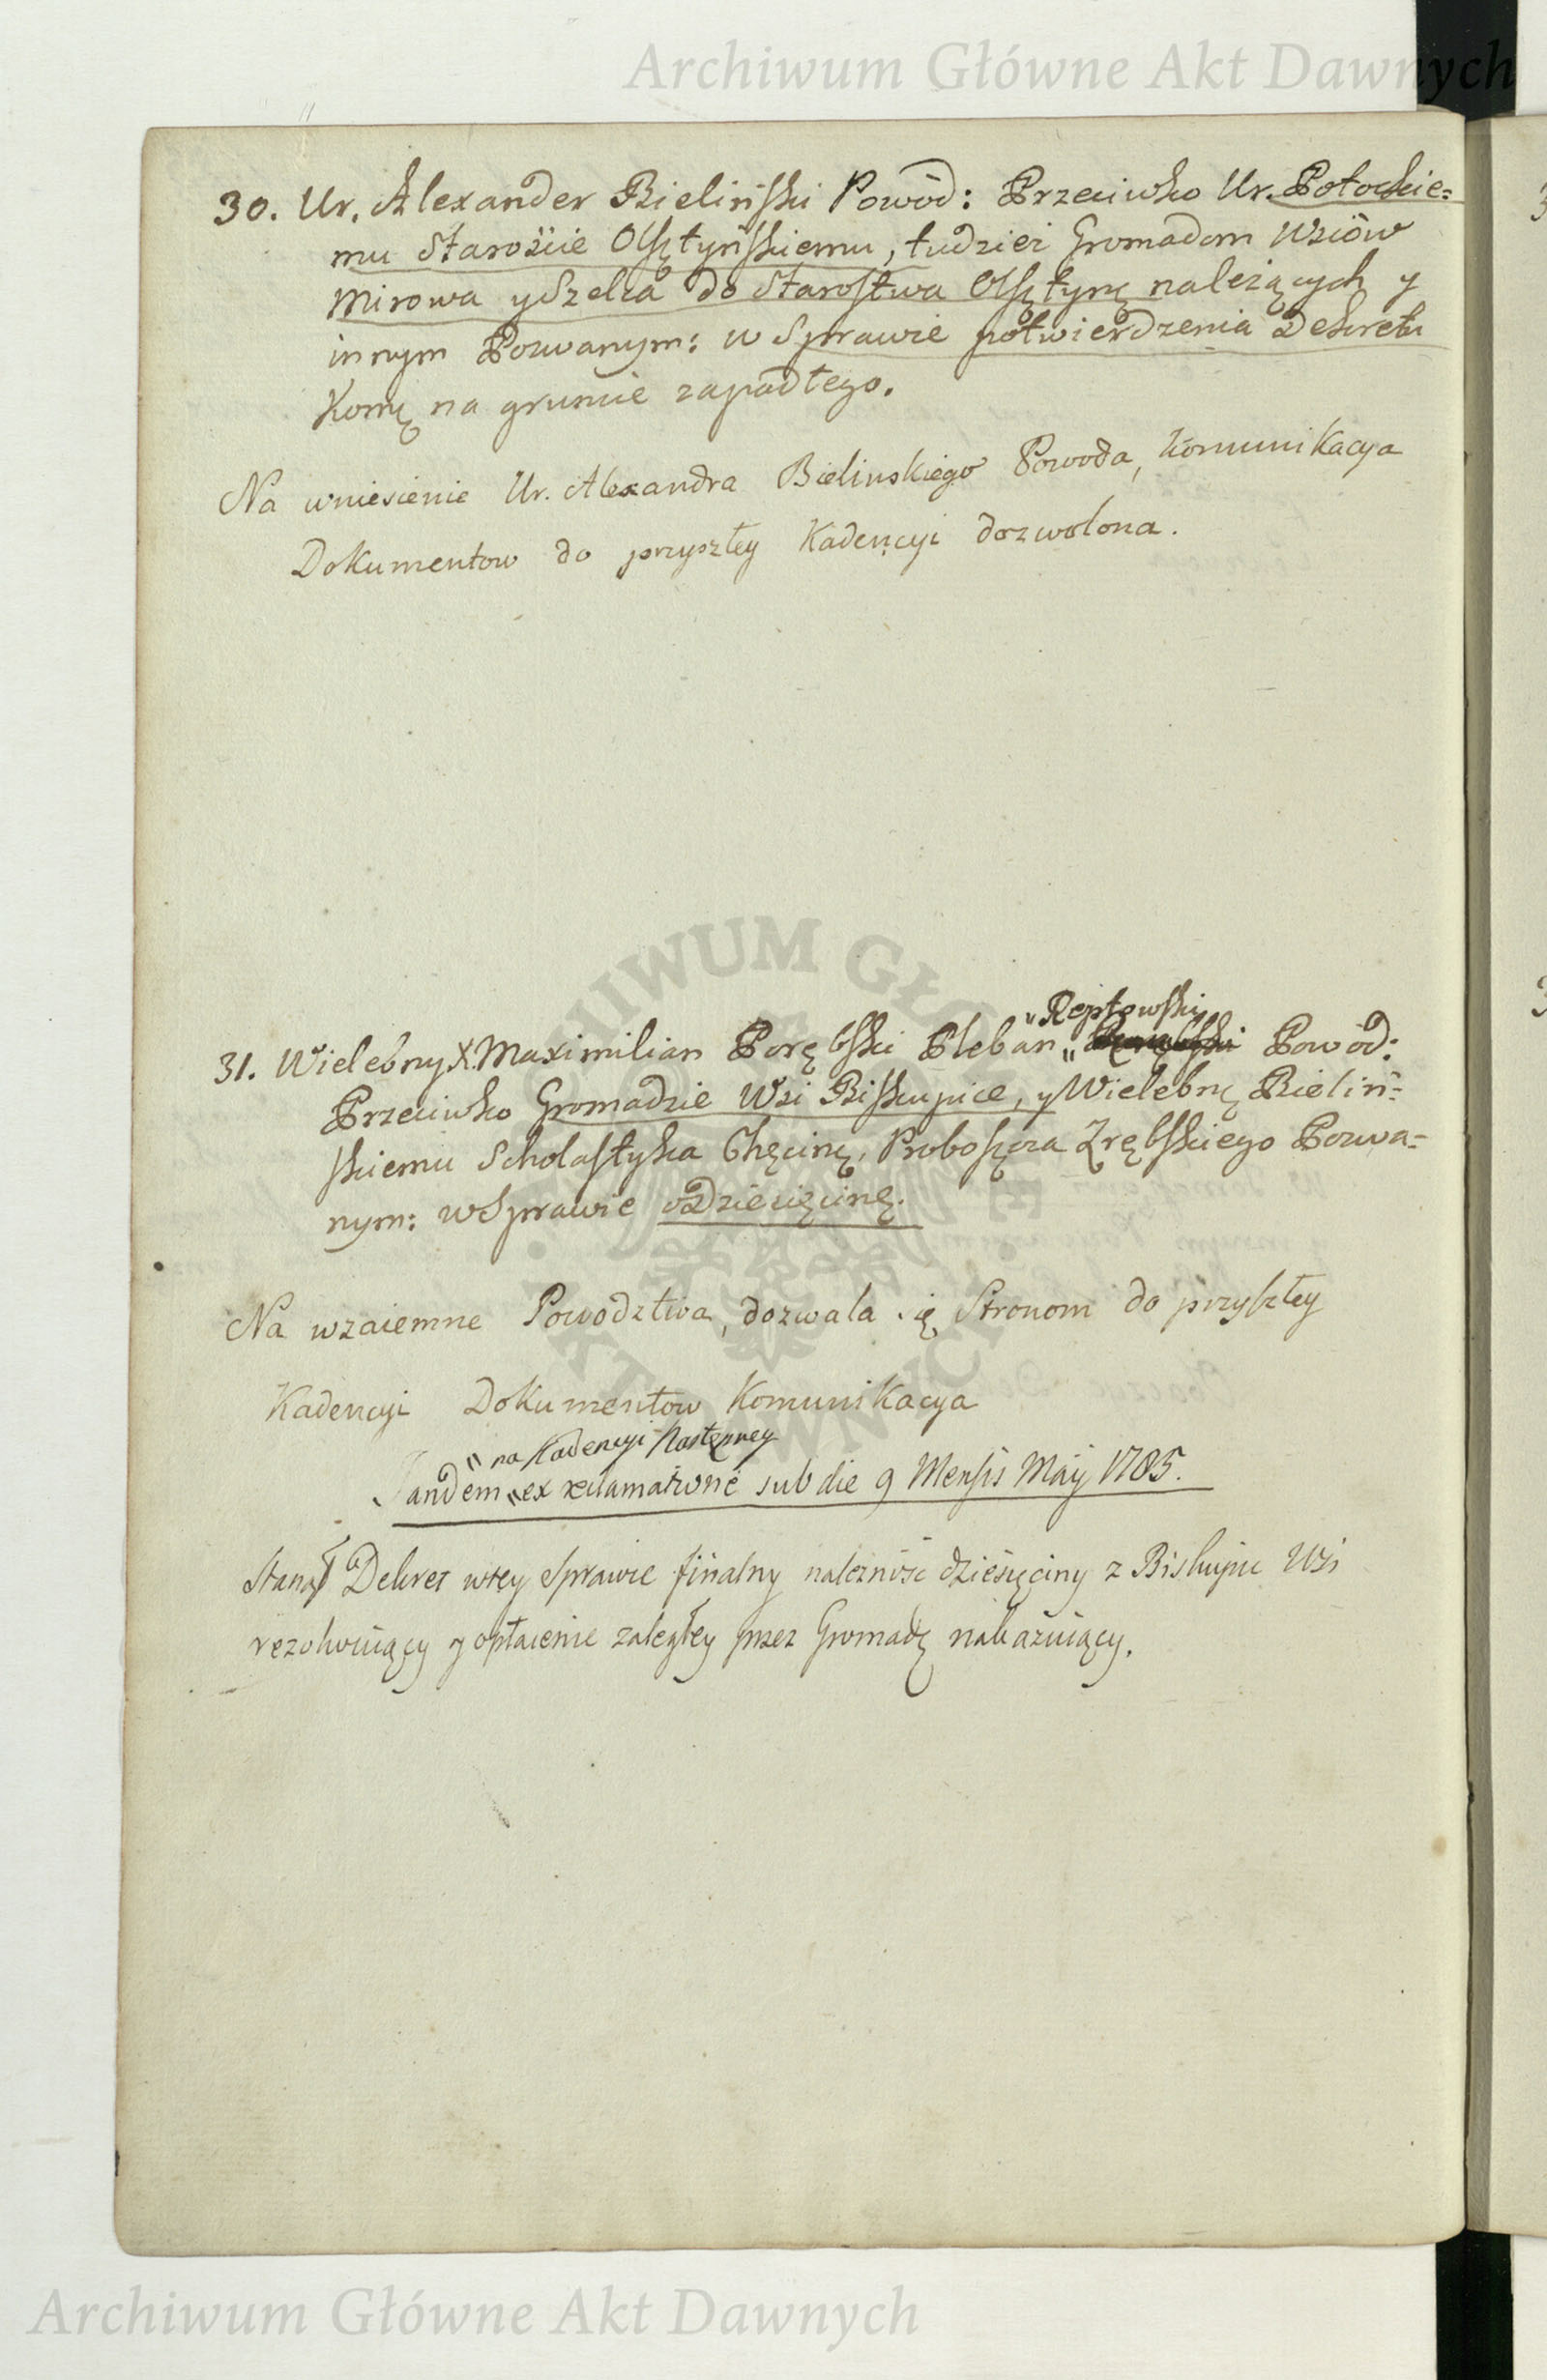 Archiwum Główne Akt Dawnych
30. Ur. Alexander Bieliński Powód: Przeciwko Ur. Potockie=
mu Staroście Olsztyńskiemu, tudzież Gromadom Wsiów
Mirowa y Szelca do Starostwa Olsztynę należących y
innym Pozwanym: w Sprawie potwierdzenia Dekretu
Komę na gruncie zapadłego.
Na wniesienie Ur. Alexandra Bielinskiego Powoda, Komunikacya
Dokumentow do przyszłey Kadencyi dozwolona.
„Reptowski
31. Wielebny X. Maximilian Porębski Pleban „ Powód:
Przeciwko Gromadzie Wsi Biskupice, y Wielebnę Bieliń=
skiemu Scholastyka Chęcinę, Proboszcza Zrębskiego Pozwa=
nym: w Sprawie o Dziesięcinę.
Na wzaiemne Powodztwa, dozwala się Stronom do przyszłey
Kadencyi Dokumentow Komunikacya
„ na Kadencyi Następney
Tandem „ ex reclamatione sub die 9 Mensis Maij 1785.
Stanął Dekret w tey Sprawie finalny należność dziesięciny z Biskupic Wsi
rezolwuiący y opłacenie zaległey przez Gromadę nakazuiący.
Archiwum Główne Akt Dawnych